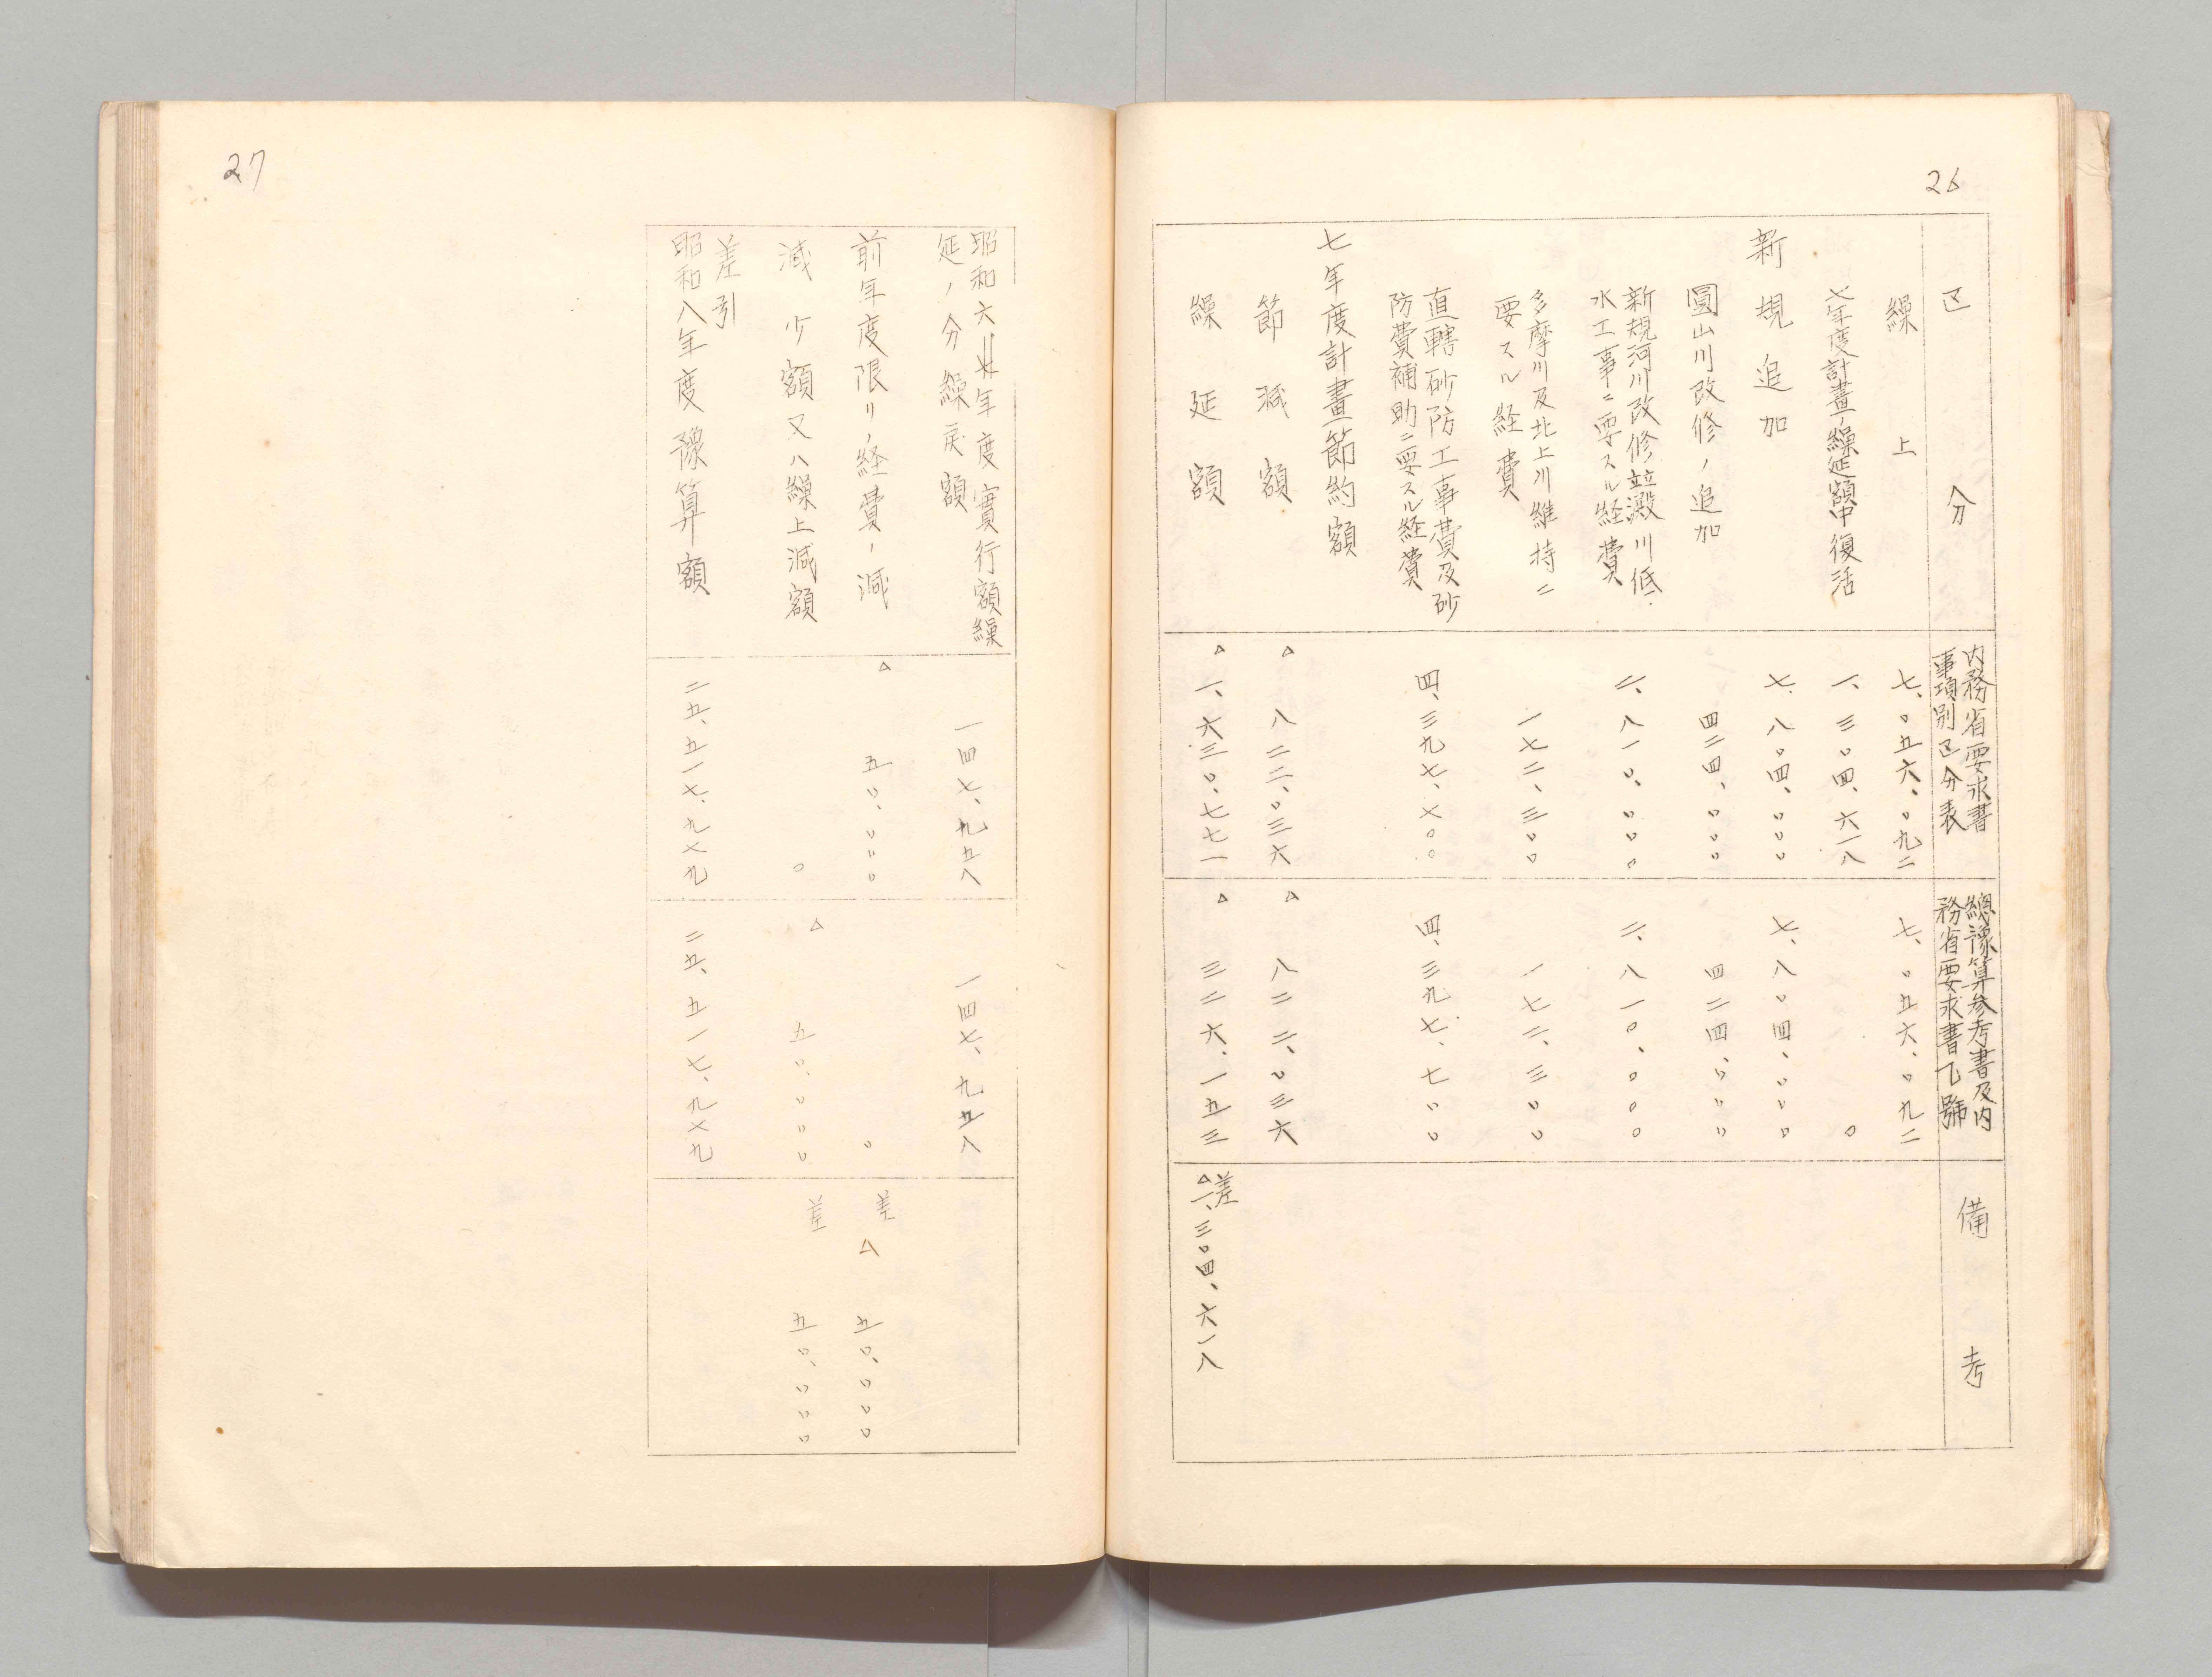 26
区分
内務省要求書
事項別区分表
總豫算參考書及内
務省要求書乙號
備考
繰上
七、〇五六、〇九二
七、〇五六、〇九二
七年度計畫ノ繰延額中復活
一、三〇四、六一八
〇
新規追加
七、八〇四、〇〇〇
七、八〇四、〇〇〇
圓山川改修ノ追加
四二四、〇〇〇
四二四、〇〇〇
新規河川改修並澱川低
水工事ニ要スル経費
二、八一〇、〇〇〇
二、八一〇、〇〇〇
多摩川及北上川維持ニ
要スル経費
一七二、三〇〇
一七二、三〇〇
直轄砂防工事費及砂
防費補助ニ要スル経費
四、三九七、七〇〇
四、三九七、七〇〇
七年度計畫節約額
節減額
△八二二、〇三六
△八二二、〇三六
繰延額
△一、六三〇、七七一
△三二六、一五三
差
△一、三〇四、六一八
27
昭和六、七年度實行額繰
延ノ分繰戻額
一四七、九五八
一四七、九五八
前年度限リノ経費ノ減
△五〇、〇〇〇
〇
差
△五〇、〇〇〇
減少額又ハ繰上減額
〇
△五〇、〇〇〇
差
五〇、〇〇〇
差引
昭和八年度豫算額
二五、五一七、九七九
二五、五一七、九七九